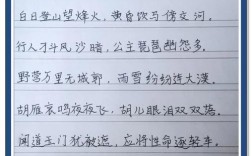 白日登山望烽火，黄昏饮马傍交河。
行人刁斗风沙暗，公主琵琶幽怨多。
野营万里无城郭，雨雪纷纷连大漠。
胡雁哀鸣夜夜飞，胡儿眼泪双双落。
闻道玉门犹被遮，应将性命逐轻车。